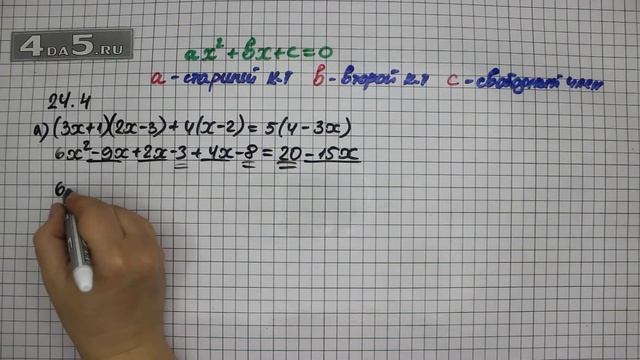 4DA5.RU
ax²+bx+c=0
a - старший к.т b - второй к.т c - свободный член
24.4
а) (3x+1)(2x-3)+4(x-2)=5(4-3x)
6x²-9x+2x-3+4x-8=20-15x
6